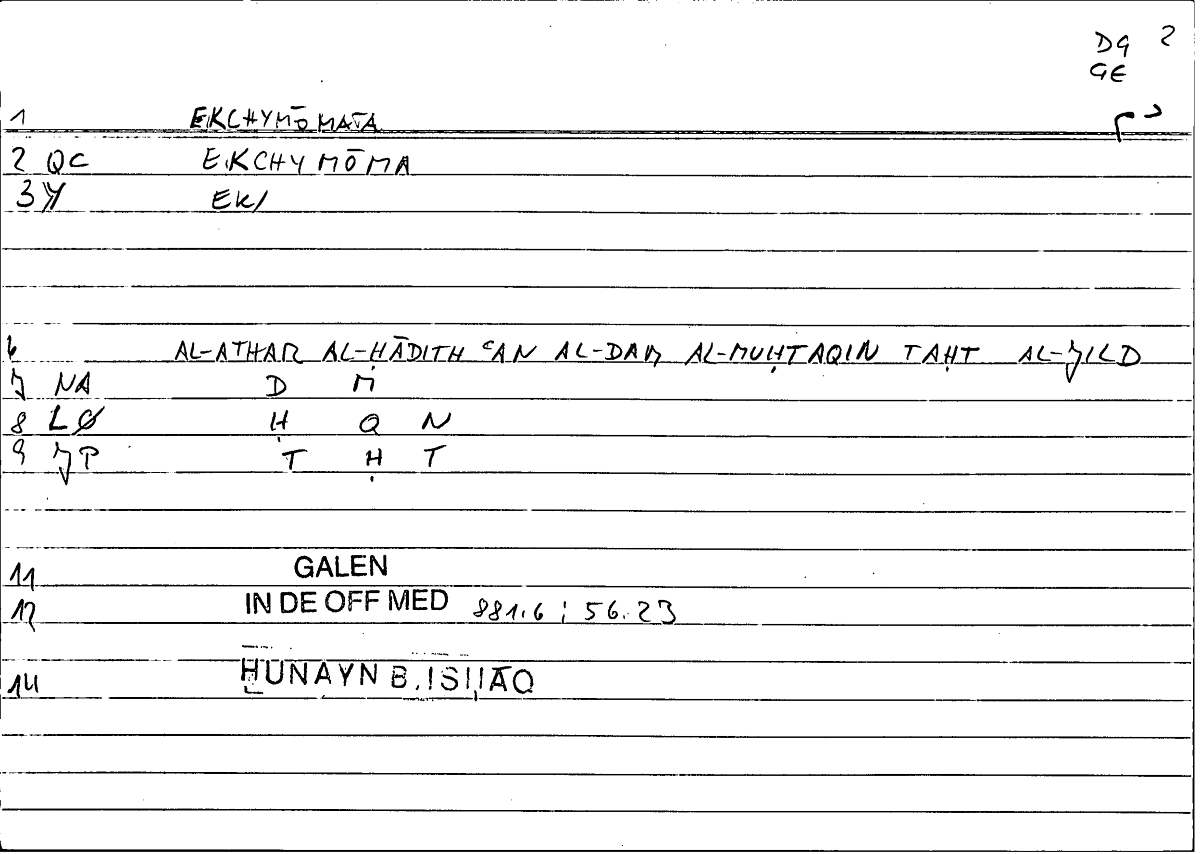 DG 2
GE
1 EKCHYMŌMATA
2 QC EKCHYMŌMA
3 Y EK/
6 AL-ATHAR AL-ḤĀDITH ʿAN AL-DAM AL-MUḤTAQIN TAḤT AL-JILD
7 NA D M
8 LØ Ḥ Q N
9 JP T Ḥ T
11 GALEN
12 IN DE OFF MED 881.6 ; 56.23
14 ḤUNAYN B. ISḤĀQ